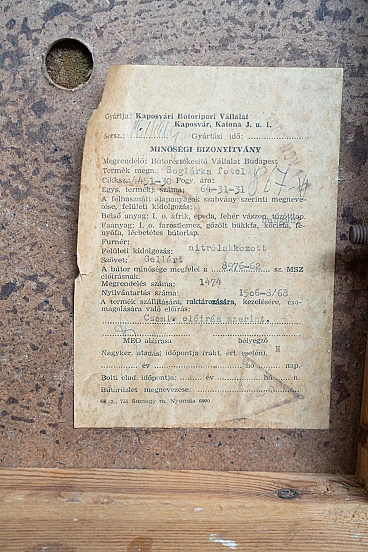 Gyártja: Kaposvári Bútoripari Vállalat
Kaposvár, Katona J. u. 1.
Sorsz.: Gyártási idő:
MINŐSÉGI BIZONYÍTVÁNY
Megrendelő: Bútorértékesítő Vállalat Budapest
Termék megn.: Boglárka fotel
Cikksz.: 4451-30 Fogy. ára:
Egys. termékj. száma: 64-31-31
A felhasznált alapanyagok szabvány szerinti megneve-
zése, felületi kidolgozás:
Belső anyag: I. o. afrik, epeda, fehér vászon, tűzőfilap.
Faanyag: I. o. farostlemez, gőzölt bükkfa, kőrisfa, fe-
nyőfa, lécbetétes bútorlap.
Furnér:
Felületi kidolgozás: nitrólakkozott
Szövet: Gellért
A bútor minősége megfelel a 8976-62 sz. MSZ
előírásnak.
Megrendelés száma: 1474
Nyilvántartás száma: 1566-8/68.
A termék szállítására, raktározására, kezelésére, cso-
magolására való előírás:
Csomi. előírás szerint.
MEO aláírása bélyegző
Nagyker. átadási időpontja (rakt. ért. esetén).
év hó nap.
Bolti elad. időpontja: év hó n.
Bútorüzlet megnevezése:
Somogy m. Nyomda